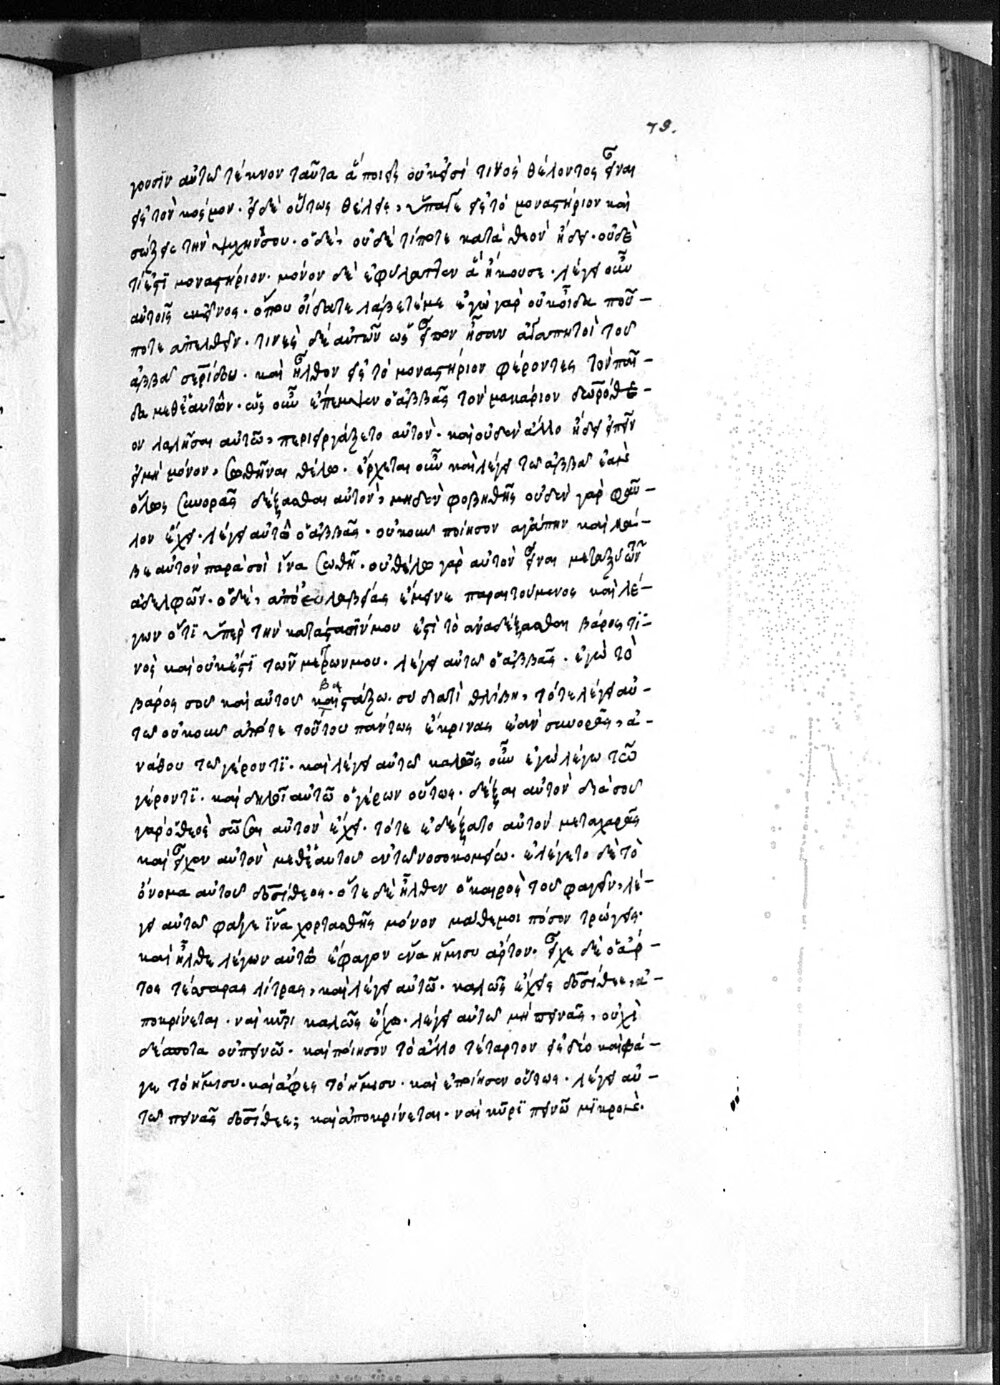 79.
γουσῒν αὐτω τέκνον ταῦτα ἃ ποιεῖς οὐκ ἐσὶ τινὸς θέλοντος εἶναι
εἰς τὸν κόσμον. εἰ δὲ οὕτως θέλεις, ὕπαγε εἰς τὸ μοναστήριον καὶ
σώζεις τὴν ψυχήν σου. ὁ δὲ, οὐδέ τίποτε κατὰ θεὸν ἤδει. οὐδὲ
τί ἐστὶ μοναστήριον. μόνον δὲ ἐφύλαττεν ἃ ἤκουσε. λέγει οὖν
αὐτοῖς ἐκεῖνος. ὅπου οἴδατε λάβετέ με ἐγὼ γὰρ οὐκ οἶδα ποῦ -
ποτε ἀπελθεῖν. τινὲς δὲ αὐτῶν ὡς εἶπον ἦσαν ἀγαπητοὶ τοῦ
ἀββᾶ σερίδου. καὶ ἦλθον εἰς τὸ μοναστήριον φέροντες τὸν παῖ -
δα μεθ' ἑαυτῶν. ὡς οὖν ἔπεμψεν ὁ ἀββᾶς τὸν μακάριον δωρόθε -
ον λαλῆσαι αὐτῶ, περιεργάζετο αὐτόν. καὶ οὐδὲν ἄλλο ἤδει εἰπεῖν
εἰ μὴ μόνον, σωθῆναι θέλω. ἔρχεται οὖν καὶ λέγει τῶ ἀββᾶ ἐὰν
ὅλως συνορᾶς δέξασθαι αὐτὸν, μηδὲν φοβηθῆς οὐδὲν γὰρ φαῦ -
λον ἔχει. λέγει αὐτῶ ὁ ἀββᾶς. οὐκοῦν ποίησον ἀγάπην καὶ λά -
βε αὐτὸν παρὰ σοὶ ἵνα σωθῆ. οὐ θέλω γὰρ αὐτὸν εἶναι μεταξὺ τῶν
ἀδελφῶν. ὁ δὲ, ἀπὸ εὐλαβείας ἔμεινε παραιτούμενος καὶ λέ -
γων ὅτι ὑπὲρ τὴν κατάστασίν μου ἐστὶ τὸ ἀναδέξασθαι βάρος τι -
νὸς καὶ οὐκ ἔστι τῶν μέτρων μου. λέγει αὐτῶ ὁ ἀββᾶς. ἐγὼ τὸ
βάρος σου καὶ αὐτοῦ βαστάζω. σὺ διατί θλίβη, τότε λέγει αὐ -
τῶ οὐκοῦν ἀπότε τοῦτο πάντως ἔκρινας ἐὰν συνορᾶς, ἀ -
νάθου τῶ γέροντι. καὶ λέγει αὐτῶ καλῶς οὖν ἐγὼ λέγω τῶ
γέροντι. καὶ δηλοῖ αὐτῶ ὁ γέρων οὕτως. δέξαι αὐτὸν διὰ σοῦ
γὰρ ὁ θεὸς σῶσαι αὐτὸν ἔχει. τότε ἐδέξατο αὐτὸν μετὰ χαρᾶς
καὶ εἶχεν αὐτὸν μεθ' ἑαυτοῦ ἐν τῶ νοσοκομείω. ἐλέγετο δὲ τὸ
ὄνομα αὐτοῦ δοσίθεος. ὅτε δὲ ἦλθεν ὁ καιρὸς τοῦ φαγεῖν, λέ -
γει αὐτῶ φάγε ἵνα χορτασθῆς μόνον μάθε μοι πόσον τρώγεις.
καὶ ἦλθε λέγων αὐτῶ ἔφαγον ἕνα ἥμισυ ἄρτον. εἶχε δὲ ὁ ἄρ -
τος τέσσαρας λίτρας, καὶ λέγει αὐτῶ. καλῶς ἔχεις δοσίθεε, ἀ -
ποκρίνεται. ναὶ κῦρι καλῶς ἔχω. λέγει αὐτῶ μὴ πεινᾶς, οὐχὶ
δέσποτα οὐ πεινῶ. καὶ ποίησον τὸ ἄλλο τέταρτον εἰς δύο καὶ φά -
γε τὸ ἥμισυ. καὶ ἄφες τὸ ἥμισυ. καὶ ἐποίησεν οὕτως. λέγει αὐ -
τῶ πεινᾶς δοσίθεε; καὶ ἀποκρίνεται. ναὶ κῦρϊ πεινῶ μϊκρὸν.